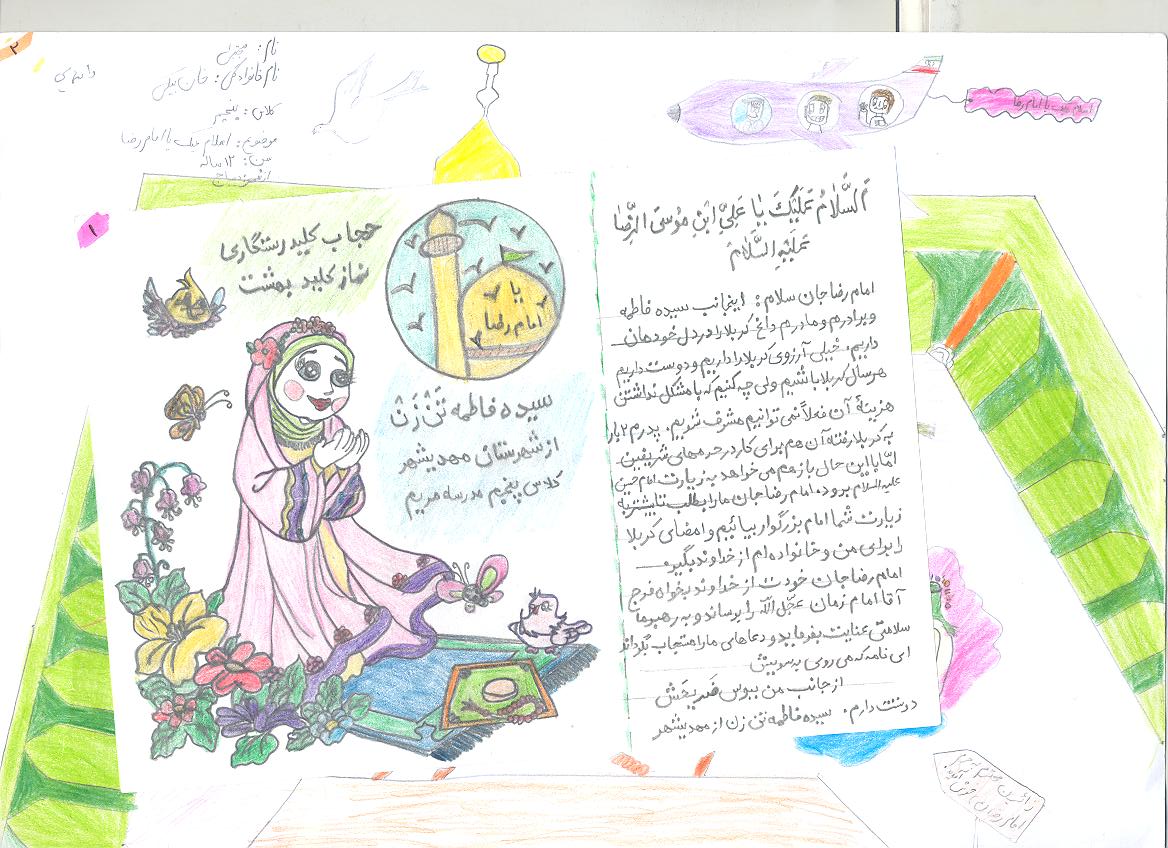 ۲
نام:
نام خانوادگی: خان
کلاس: پنجم
موضوع: اسلام علیک یا امام رضا
سن: ۱۲ ساله
۱
حجاب کلید رستگاری
نماز کلید بهشت
یا
امام رضا
سیده فاطمه تن زن
از شهرستان مهدیشهر
کلاس پنجم مدرسه مریم
اسلام علیک یا امام رضا
اَلسَّلامُ عَلَیْکَ یا عَلِیِّ ابْنِ مُوسَی الرِّضا
عَلَیْهِ السَّلامُ
امام رضا جان سلام: اینجانب سیده فاطمه
و برادرم و مادرم داغ کربلا را در دل خودمان
داریم. خیلی آرزوی کربلا را داریم و دوست داریم
هر سال کربلا باشیم ولی چه کنیم که با مشکل نداشتن
هزینهٔ آن فعلاً نمی توانیم مشرف شویم. پدرم ۲ بار
به کربلا رفته آن هم برای کار در حرمهای شریفین.
امّا با این حال باز هم می خواهد به زیارت امام حسین
علیه السلام برود. امام رضا جان ما را بطلب تا بیشتر به
زیارت شما امام بزرگوار بیائیم و امضای کربلا
را برای من و خانواده ام از خداوند بگیر.
امام رضا جان خودت از خداوند بخواه فرج
آقا امام زمان عجّل الله را برساند و به رهبر ما
سلامتی عنایت بفرماید و دعاهای ما را مستجاب بگرداند
ای نامه که می روی به سویش
از جانب من ببوس ضریحش
دوستت دارم. سیده فاطمه تن زن از مهدیشهر